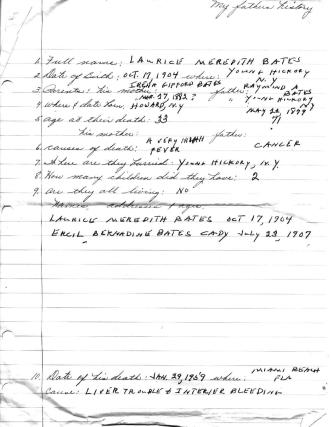 My father's history
1. Full name: LAURICE MEREDITH BATES
2. Date of birth: OCT. 17, 1904 where: YOUNG HICKORY N.Y
3. Parents: his mother: ERENA GIFFORD BATES father: RAYMOND A. BATES
4. where & date born, MAR. 27, 1882 HOWARD, N.Y " YOUNG HICKORY N.Y MAY 22, 1899
5. age at their death: 33 71
his mother: father:
6. causes of death: A VERY HIGH FEVER CANCER
7. Where are they buried: YOUNG HICKORY, N.Y.
8. How many children did they have: 2
9. are they all living: NO
Names, addresses & ages:
LAURICE MEREDITH BATES OCT 17, 1904
ERCIL BERNADINE BATES CADY July 23, 1907
10. Date of his death: JAN. 29, 1959 where: MIAMI BEACH FLA
cause: LIVER TROUBLE & INTERIER BLEEDING